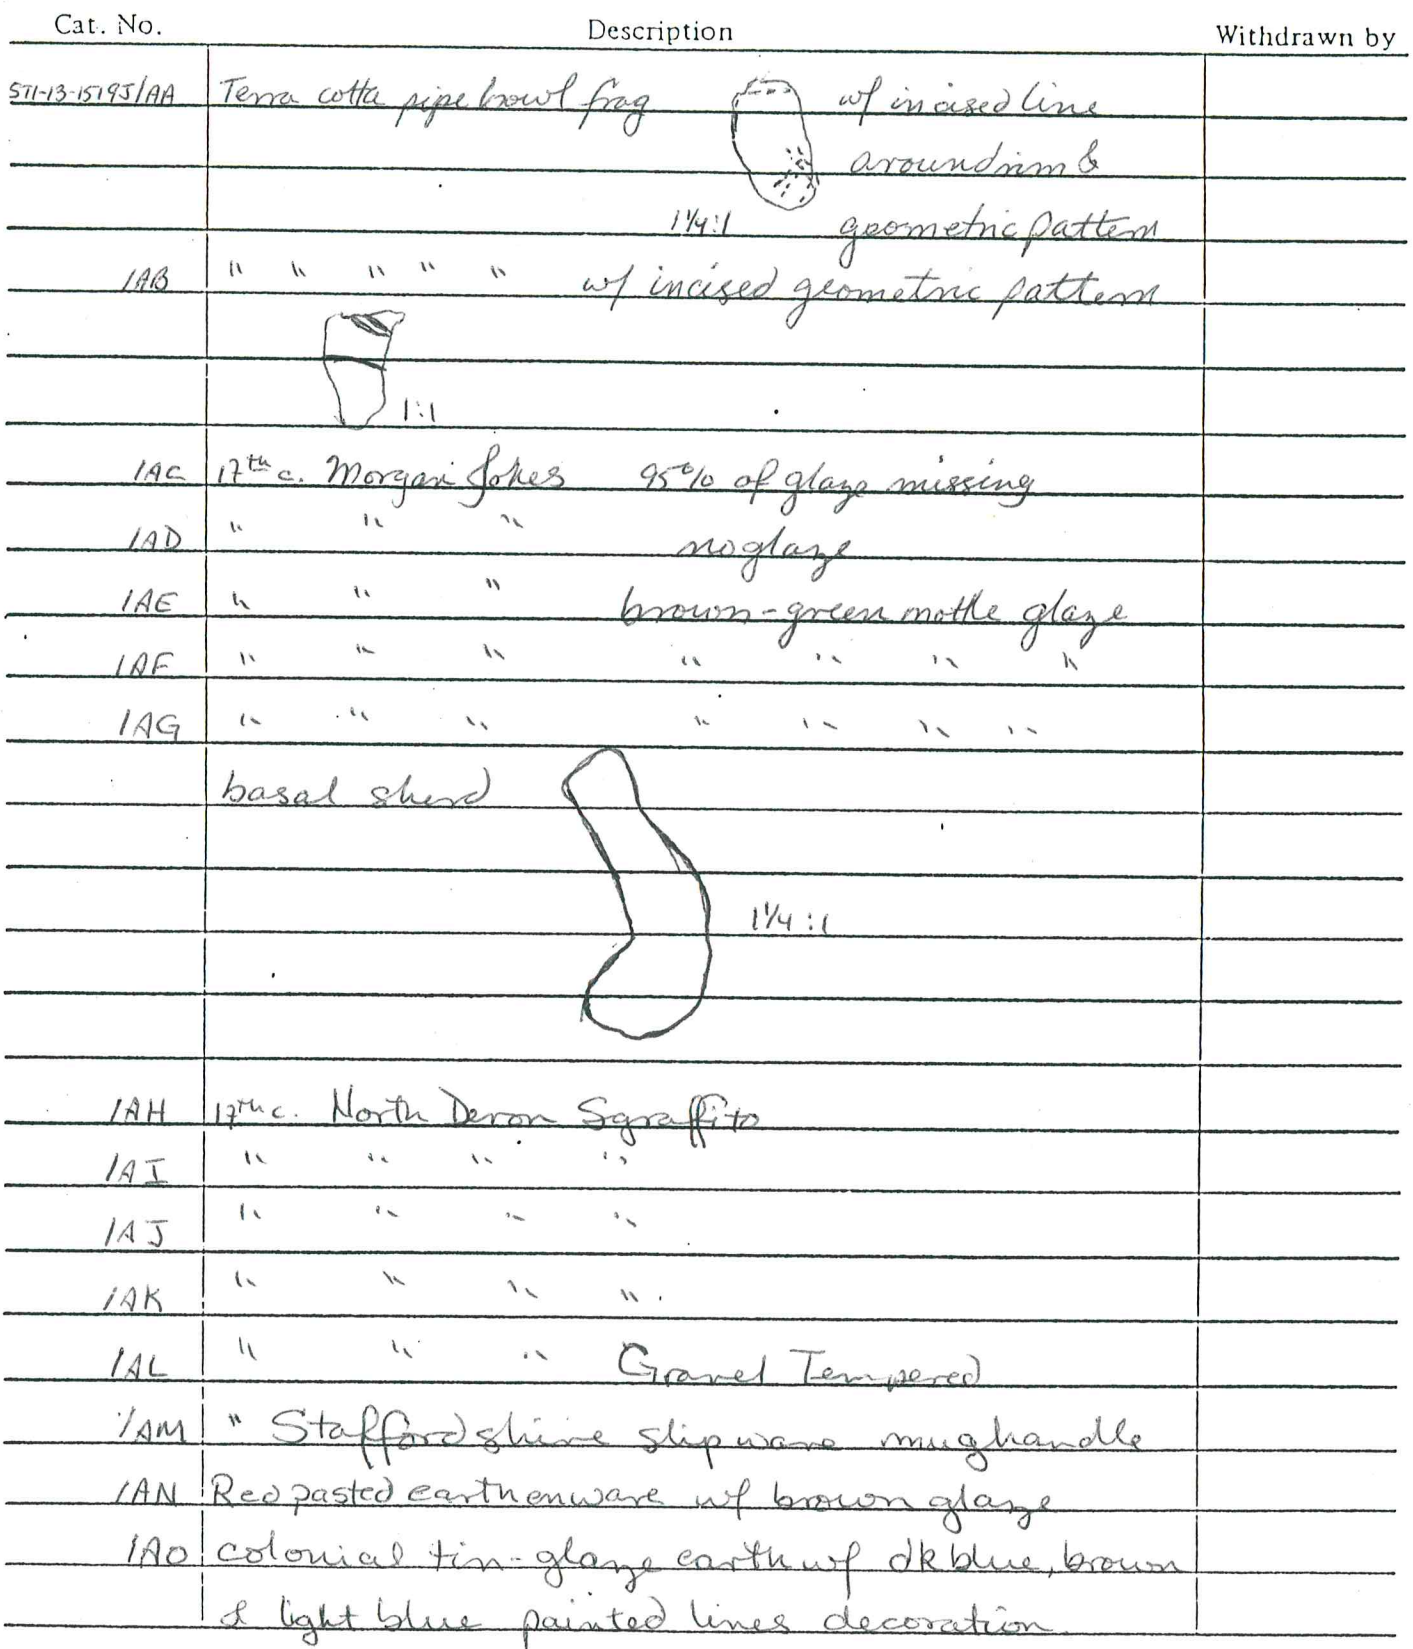 Cat. No. Description Withdrawn by
ST1-13-1519J/AA Terra cotta pipe bowl frag w/ incised line
around rim &
1 1/4:1 geometric pattern
/AB " " " " " w/ incised geometric pattern
1:1
/AC 17th c. Morgan Jones 95% of glaze missing
/AD " " " no glaze
/AE " " " brown-green mottle glaze
/AF " " " " " " "
/AG " " " " " " "
basal sherd
1 1/4:1
/AH 17th c. North Devon Sgraffito
/AI " " " "
/AJ " " " "
/AK " " " "
/AL " " " Gravel Tempered
/AM " Staffordshire slipware mug handle
/AN Red pasted earthenware w/ brown glaze
/AO colonial tin-glaze earth w/ dk blue, brown
& light blue painted lines decoration.